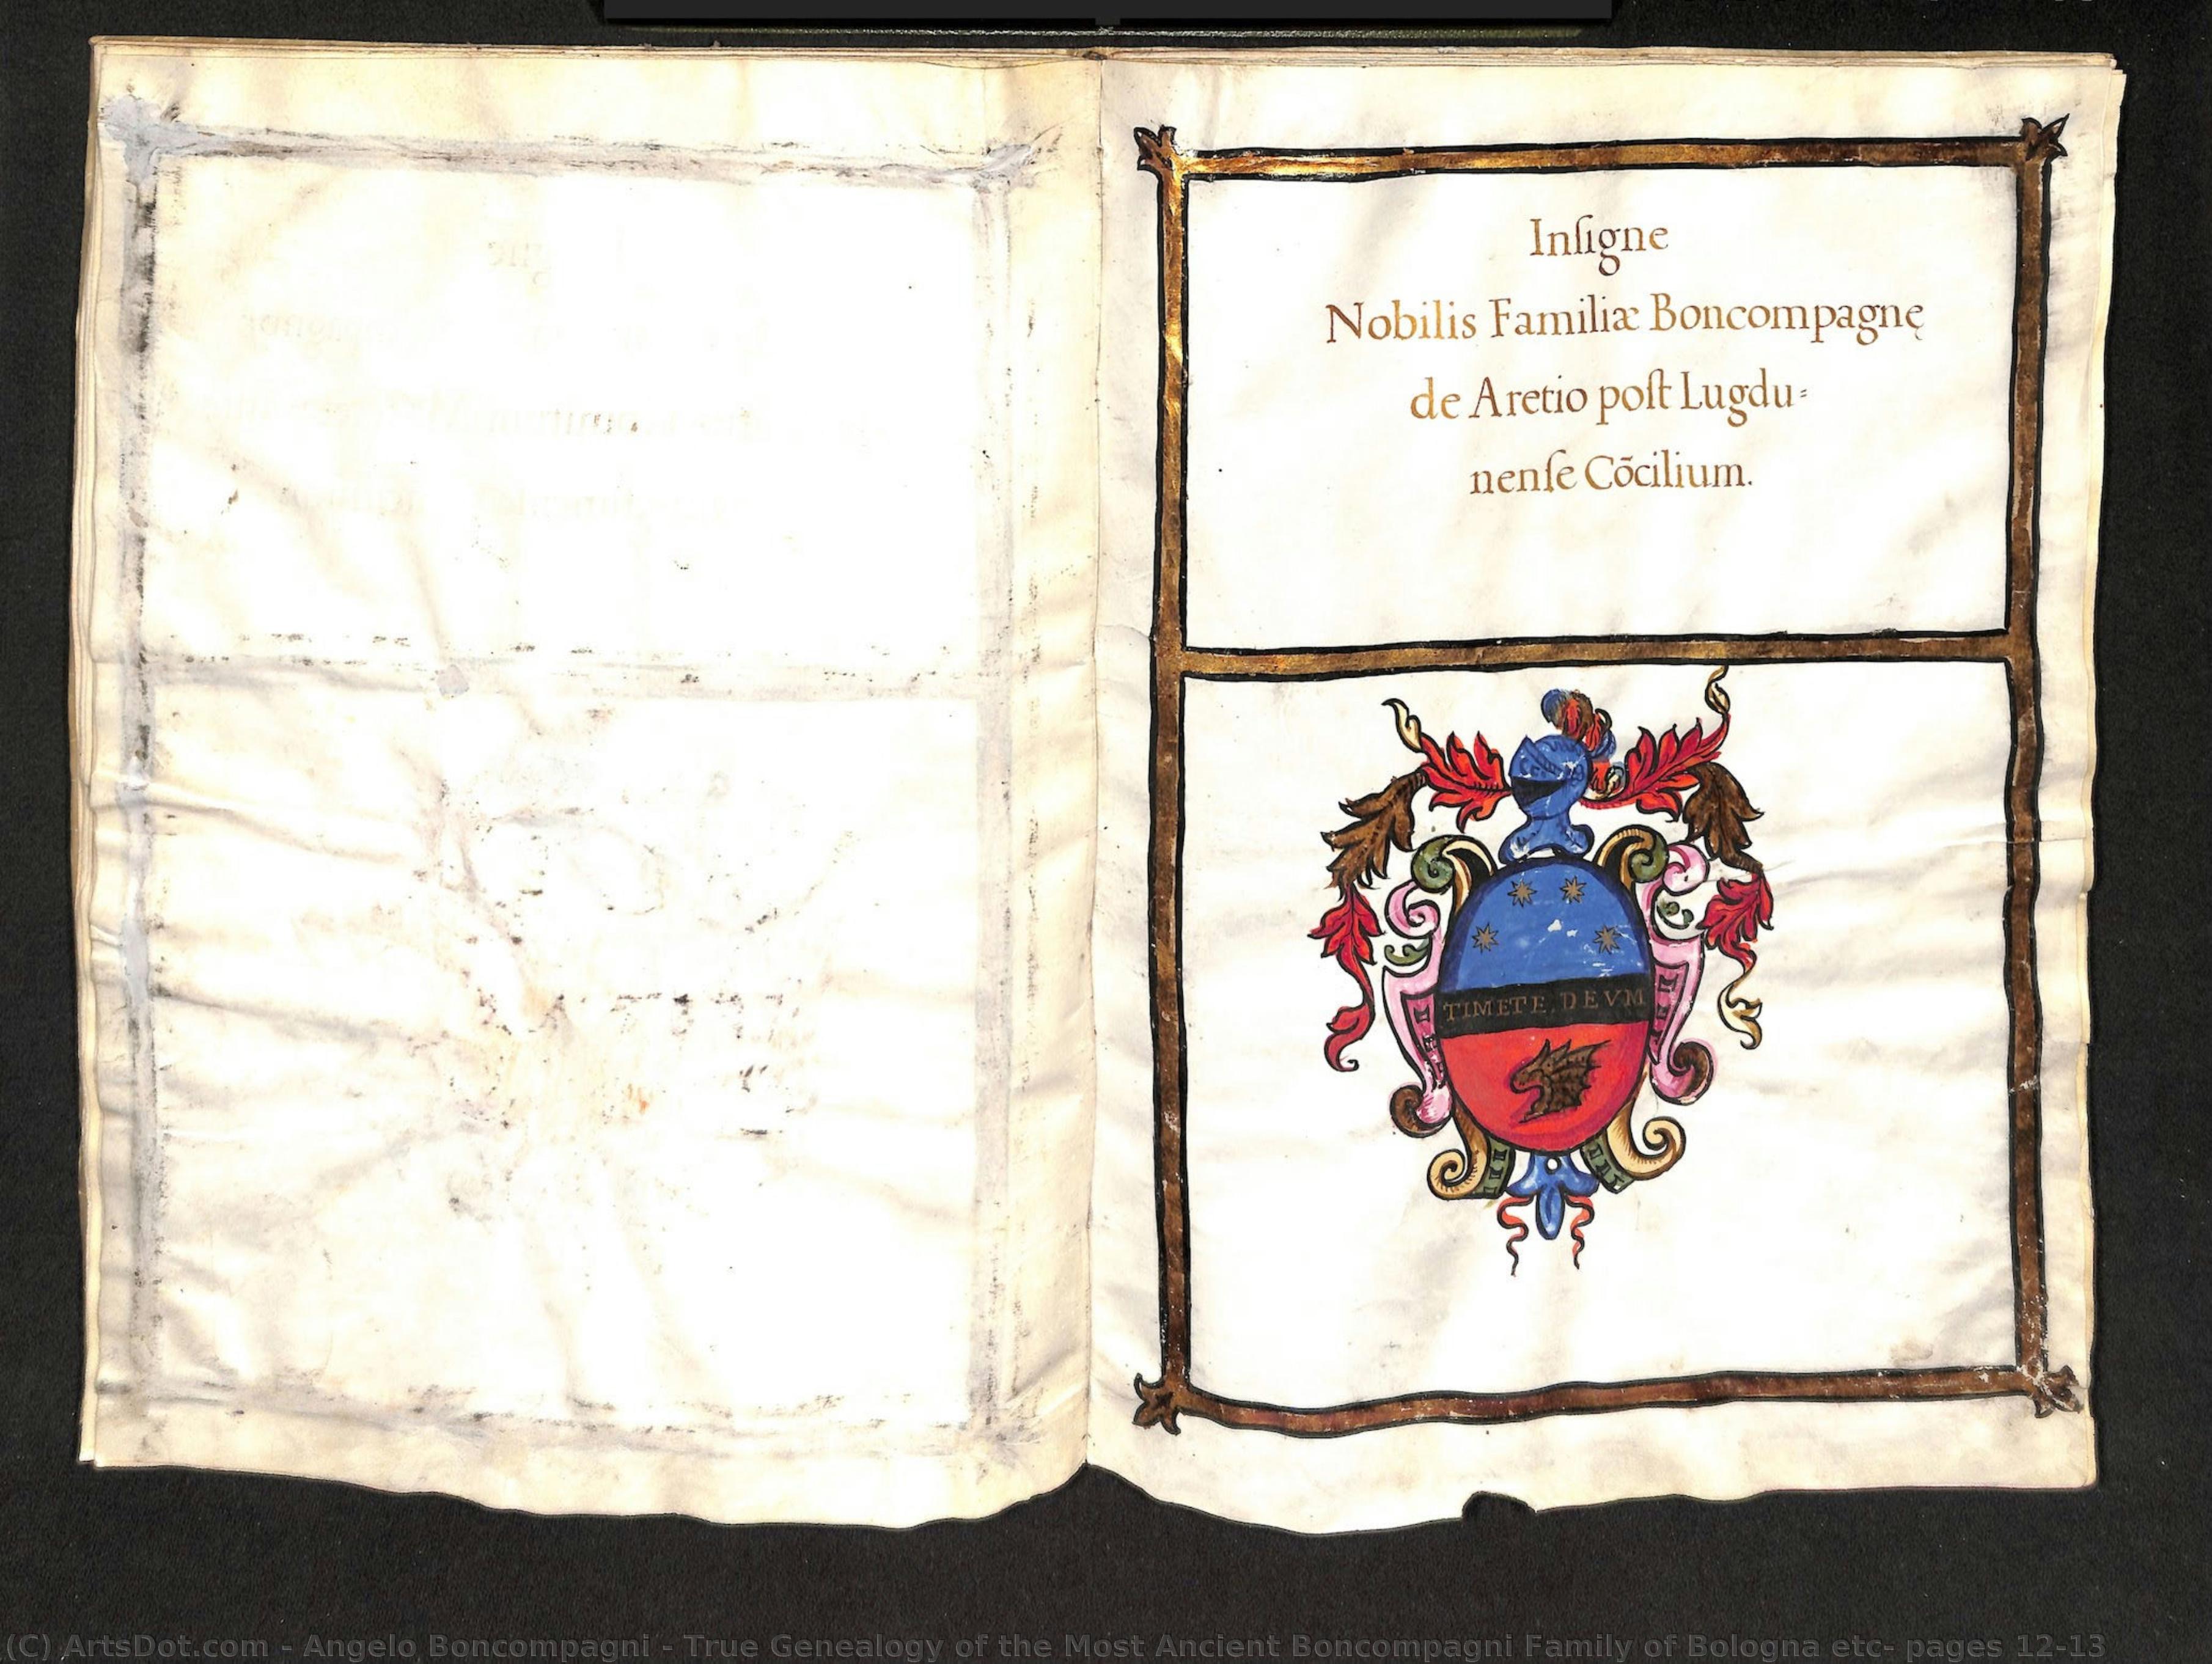 Inſigne
Nobilis Familiæ Boncompagnę
de Aretio poſt Lugdu⸗
nenſe Cõcilium.
TIMETE. DEVM
(C) ArtsDot.com - Angelo Boncompagni - True Genealogy of the Most Ancient Boncompagni Family of Bologna etc- pages 12-13